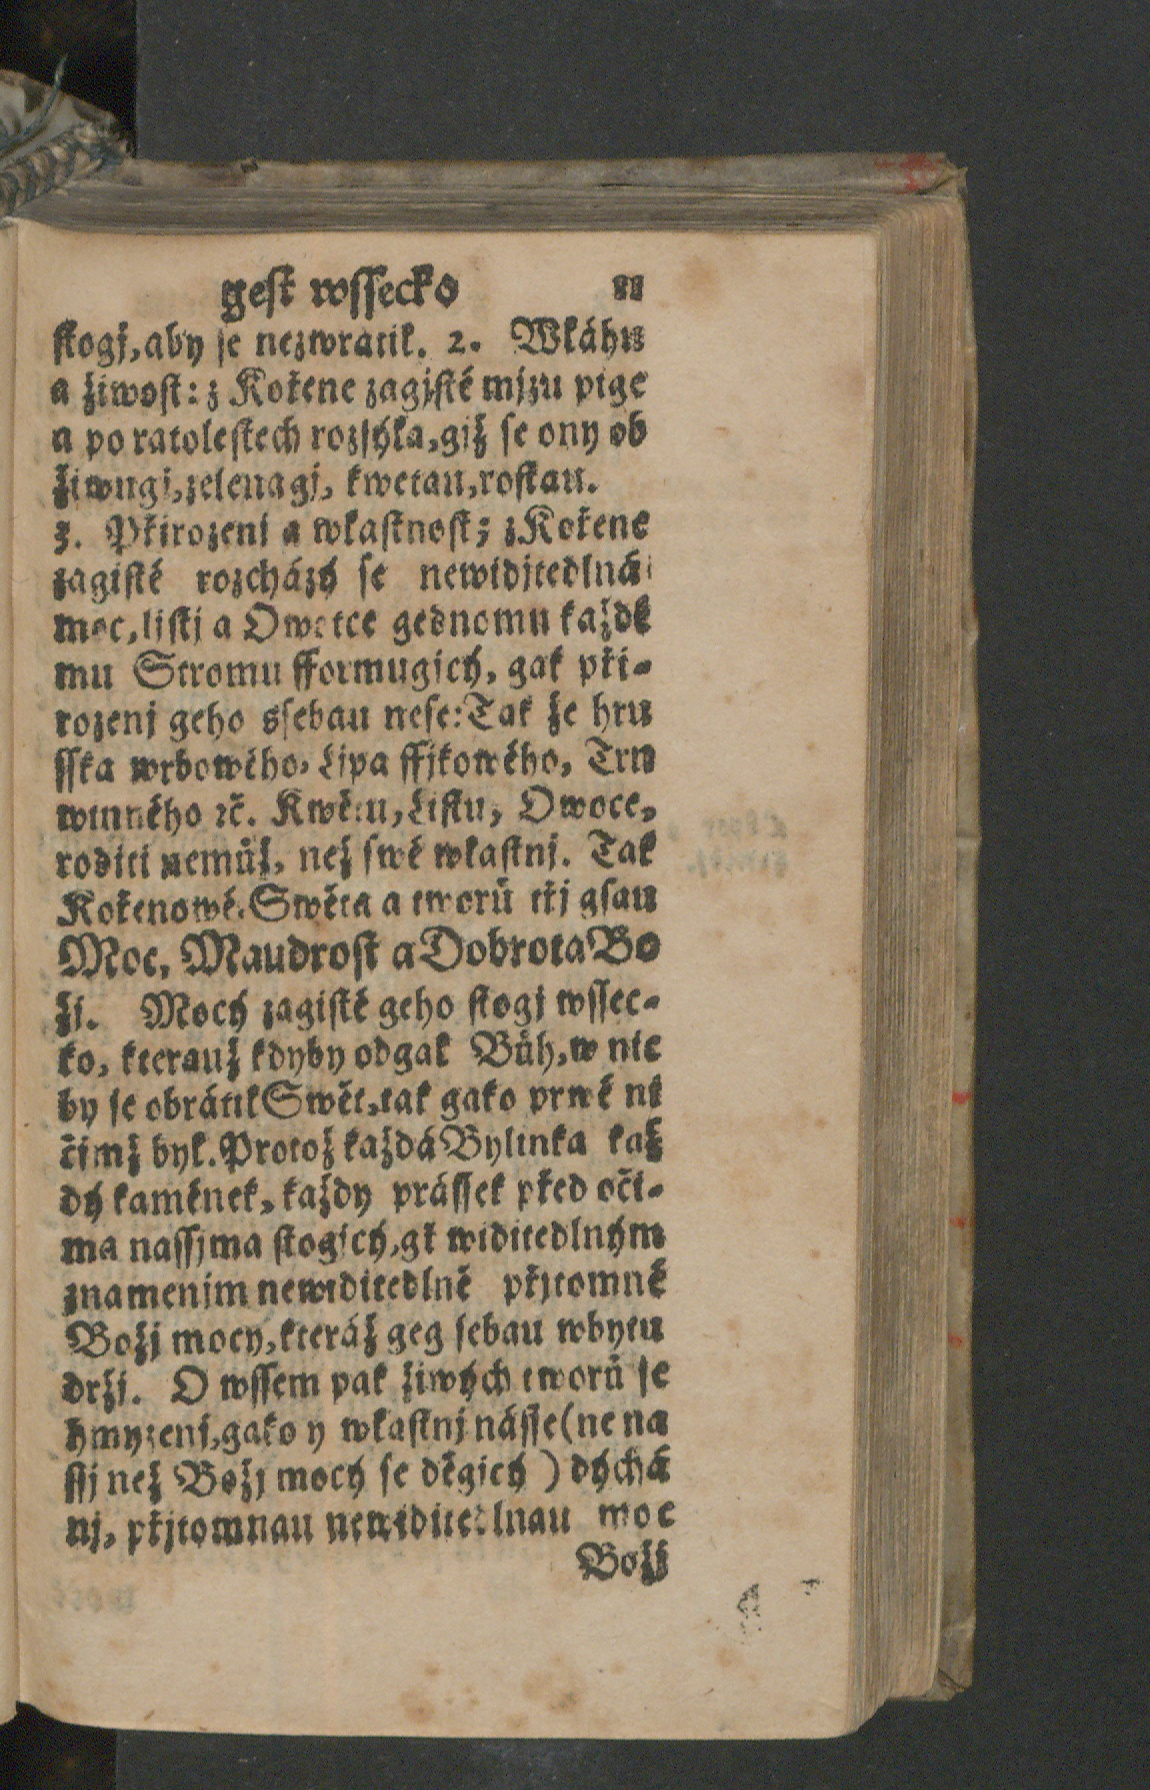 gest wssecko 88
stogj, aby se nezwrátil. 2. Wláhu
a žiwost: z Kořene zagjsté mjzu pige
a po ratolestech rozsýla, gjž se ony ob
žiwugj, zelenagj, kwetau, rostau.
3. Přirozenj a wlastnost; z Kořene
zagisté rozcházý se newidjtedlná
moc, listj a Owotce gednomu každé
mu Stromu fformugjcý, gak při-
rozenj geho ssebau nese: Tak že hru
sska wrbowého, Lípa ffjkowého, Trn
winného ꝛč. Kwětu, Listu, Owoce,
roditi nemůž, než swé wlastnj. Tak
Kořenowé Swěta a tworů tři gsau
Moc, Maudrost a Dobrota Bo
žj. Mocý zagisté geho stogj wssec-
ko, kterauž kdyby odgal Bůh, w nic
by se obrátil Swět, tak gako prwé ni
čimž byl. Protož každá Bylinka kaž
dý kamének, každy prássek před oči-
ma nassjma stogjcý, gť widitedlným
znamenim newiditedlně přjtomné
Božj mocy, kteráž geg sebau wbytu
držj. O wssem pak žiwých tworů se
hmyzenj, gako y wlastnj násse (ne na
sjj než Božj mocý se děgjcý) dýchá
nj, přjtomnau newiditedlnau moc
Božj